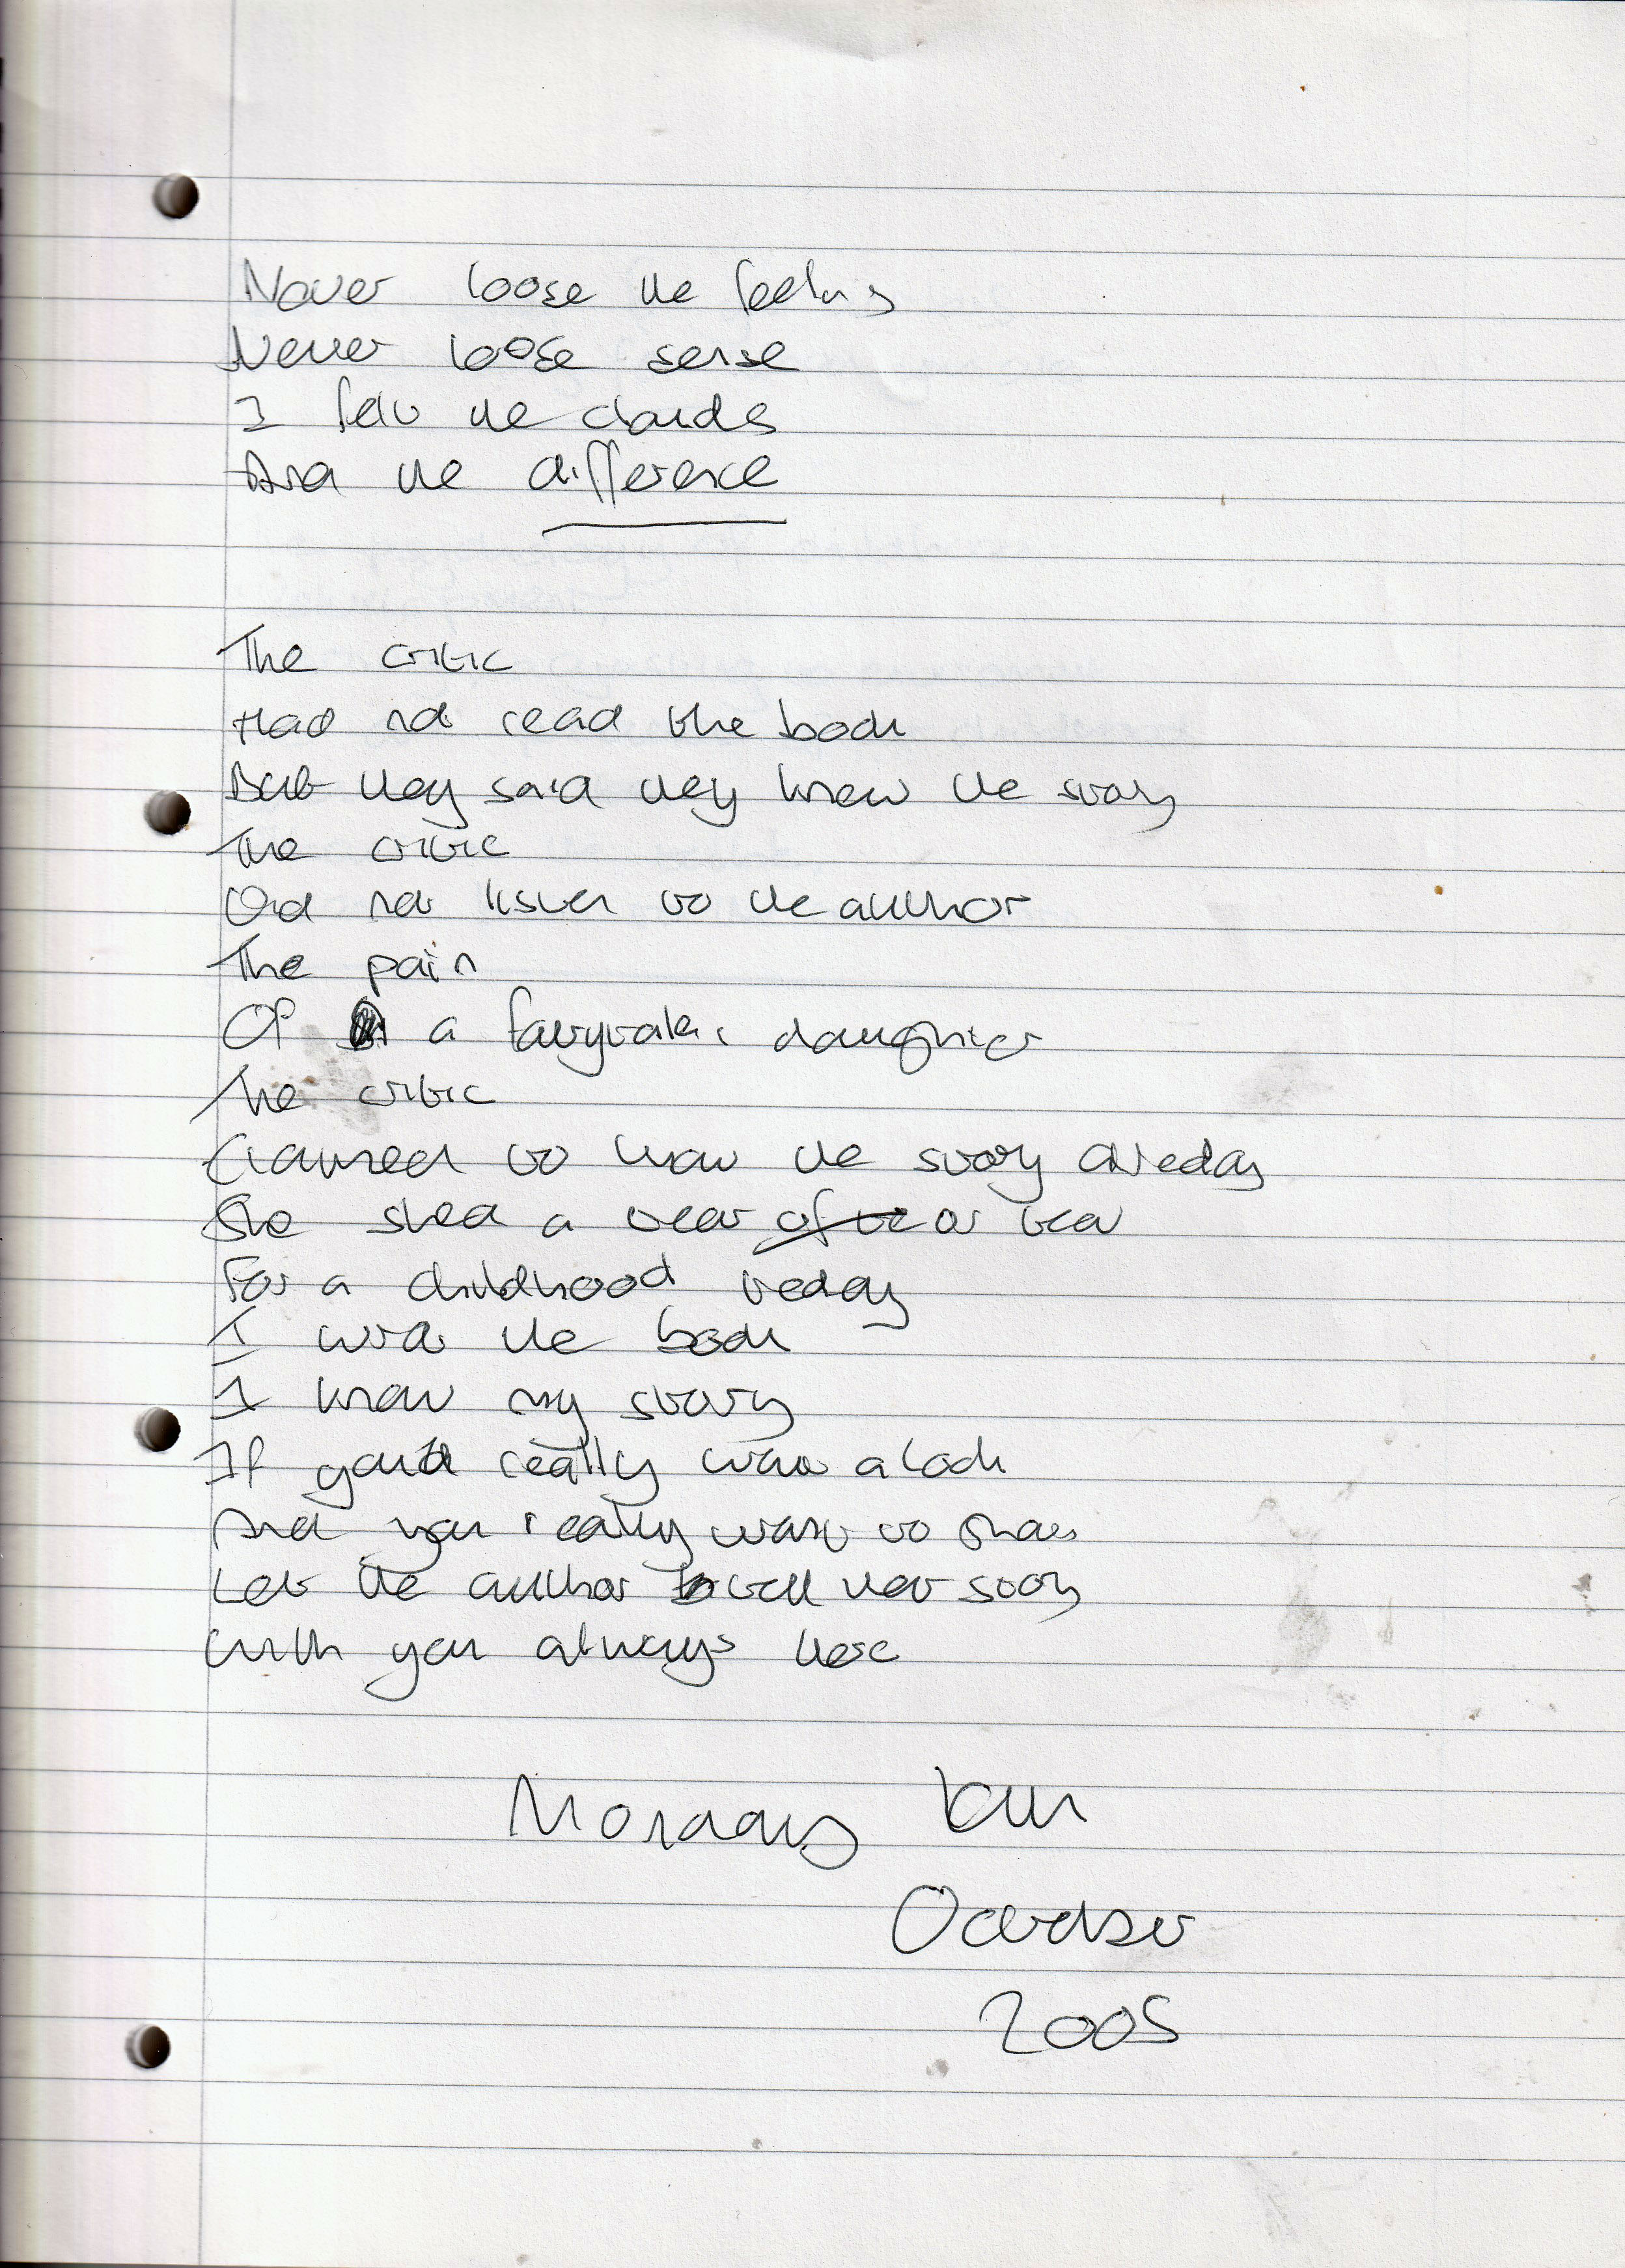 Never loose the feeling
Never loose sense
I felt the clouds
And the difference
The critic
Had not read the book
But they said they knew the story
The critic
Did not listen to the author
The pain
Of a fairytale daughter
The critic
Claimed to know the story already
She shed a tear or tear
For a childhood
I wrote the book
I know my story
If you'd really want a look
And you really want to
Let the author tell her story
With you always there
Monday
October
2005